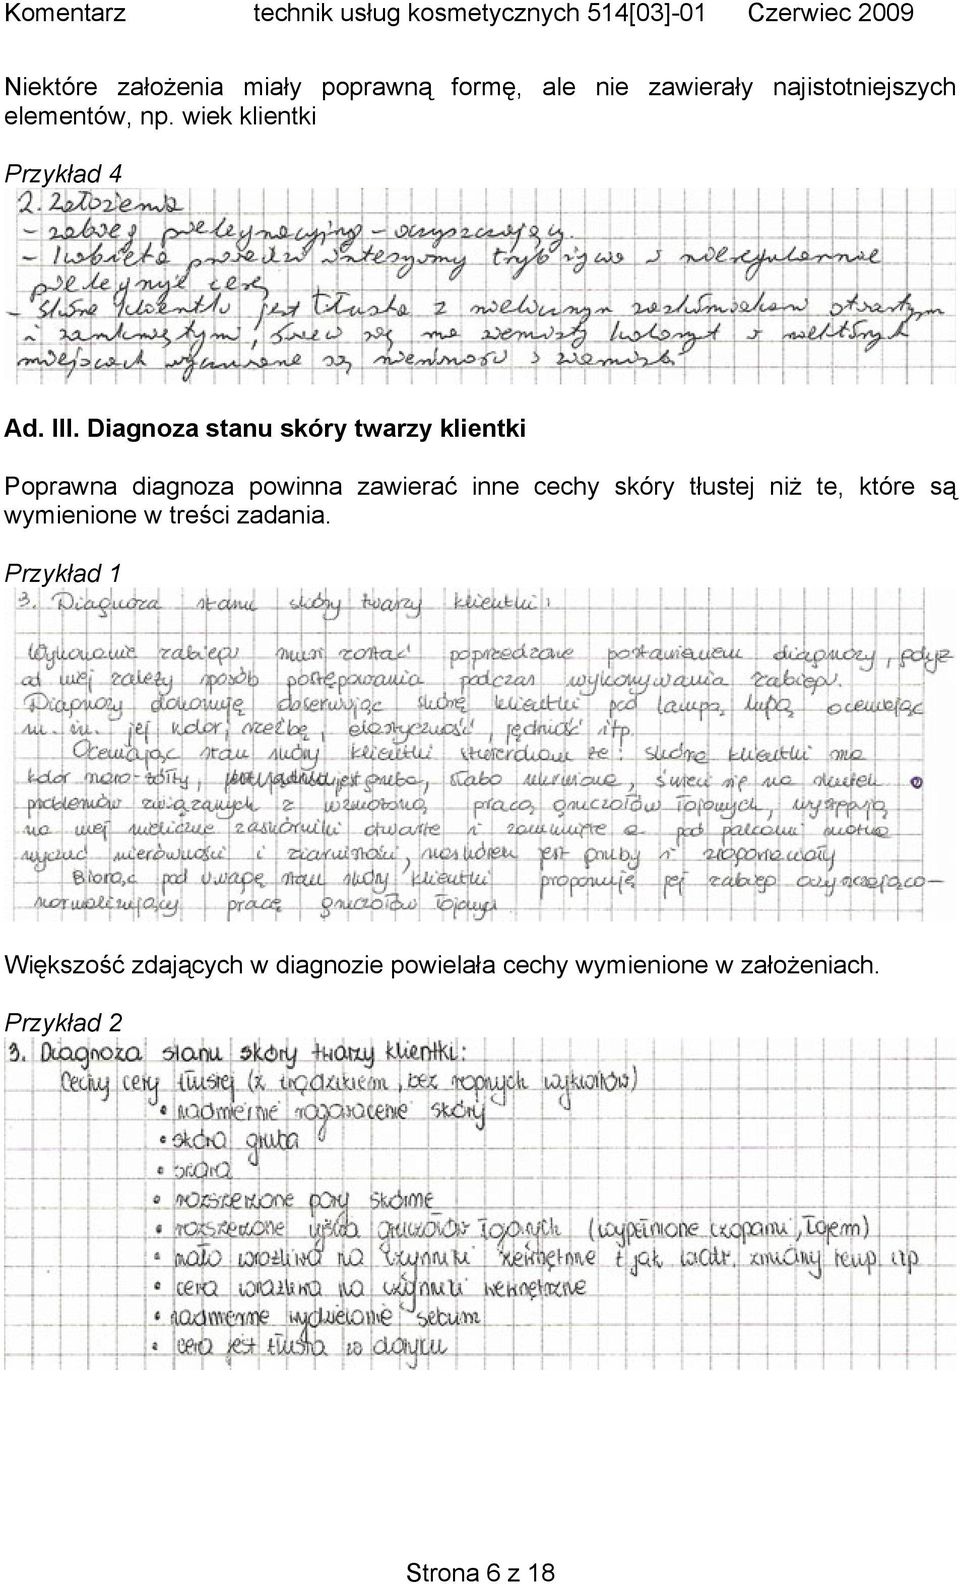 Komentarz technik usług kosmetycznych 514[03]-01 Czerwiec 2009
Niektóre założenia miały poprawną formę, ale nie zawierały najistotniejszych
elementów, np. wiek klientki
Przykład 4
2. Założenia
- zabieg pielęgnacyjno - oczyszczający.
- kobieta prowadzi intensywny tryb życia i nieregularnie
pielęgnuje cerę
- skóra klientki jest tłusta z nielicznymi zaskórnikami otwartym
i zamkniętymi, świeci się ma ziemisty koloryt i niektórych
miejscach wyczuwalne są nierówności i
Ad. III. Diagnoza stanu skóry twarzy klientki
Poprawna diagnoza powinna zawierać inne cechy skóry tłustej niż te, które są
wymienione w treści zadania.
Przykład 1
3. Diagnoza stanu skóry twarzy klientki:
Wykonanie zabiegu musi zostać poprzedzone postawieniem diagnozy, gdyż
od niej zależy sposób postępowania podczas wykonywania zabiegu.
Diagnozy dokonuję obserwując skórę klientki pod lampą lupą oceniając
m. in. jej kolor, rzeźbę, elastyczność, jędrność itp.
Oceniając stan skóry klientki stwierdzam że: skóra klientki ma
kolor szaro-żółty, jest gruba, słabo unerwiona, świeci się na skutek
problemów związanych z wzmożoną pracą gruczołów łojowych, występują
na niej nieliczne zaskórniki otwarte i zamknięte a pod palcami można
wyczuć nierówności i ziarnistości, naskórek jest gruby i zrogowaciały
Biorąc pod uwagę stan skóry klientki proponuję jej zabieg oczyszczająco-
normalizujący pracę gruczołów łojowych
Większość zdających w diagnozie powielała cechy wymienione w założeniach.
Przykład 2
3. Diagnoza stanu skóry twarzy klientki:
Cechy cery tłustej (z trądzikiem, bez ropnych wykwitów)
• nadmierne rogowacenie skóry
• skóra gruba
• szara
• rozszerzone pory skórne
• rozszerzone ujścia gruczołów łojowych (wypełnione czopami, łojem)
• mało wrażliwa na czynniki zewnętrzne t jak wiatr, zmiany temp. itp
• cera wrażliwa na czynniki wewnętrzne
• nadmierne wydzielanie sebum
• cera jest tłusta w dotyku
Strona 6 z 18